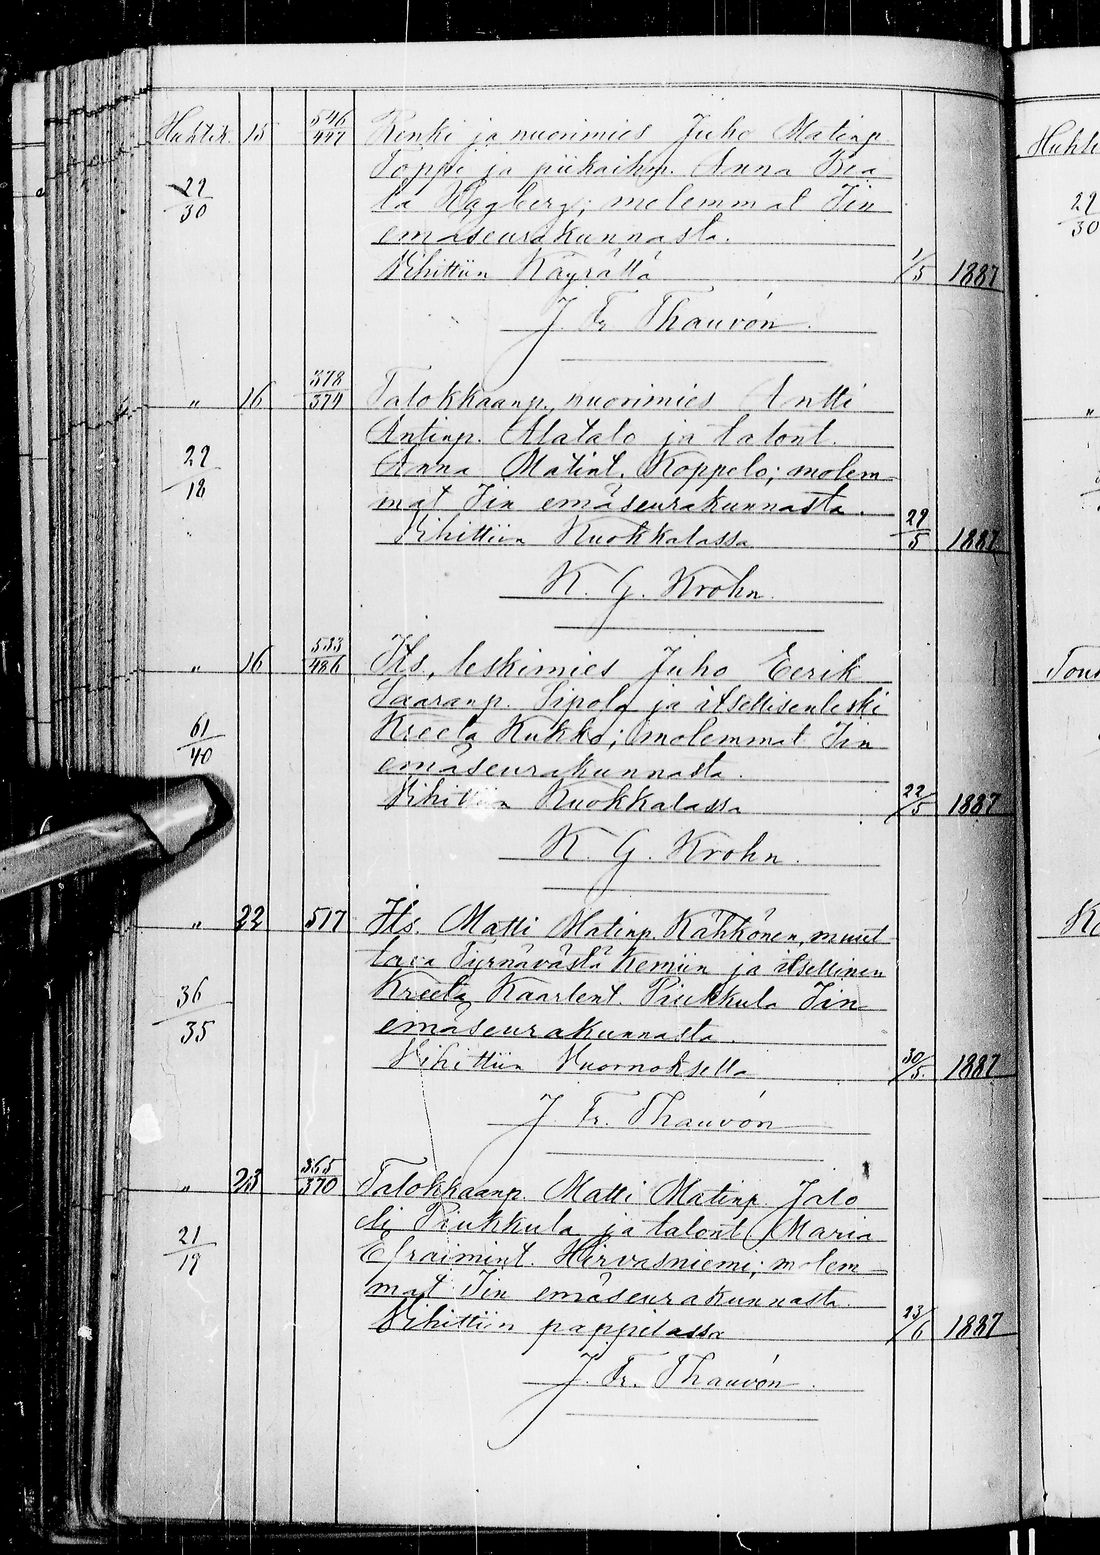 Huhtik. 15 546/447 Renki ja nuorimies Juho Matinp.
Soppi ja piikaihm. Anna Kea
29/30 ta Hagberg; molemmat Iin
emäseurakunnasta.
Vihittiin Käyrällä 1/5 1887
J. Fr. Thauvón.
" 16 378/379 Talokkaanp. nuorimies Antti
Antinp. Alatalo ja talont.
29/18 Anna Matint. Koppelo; molem-
mat Iin emäseurakunnasta.
Vihittiin Kuokkalassa 29/5 1887
K. G. Krohn.
" 16 533/486 Its. leskimies Juho Eerik
Saaranp. Sipola ja itsellisenleski
61/40 Kreeta Kukko; molemmat Iin
emäseurakunnasta.
Vihittiin Kuokkalassa 22/5 1887
K. G. Krohn.
" 22 517 Its. Matti Matinp. Kähkönen, muut
tava Tyrnävästä Kemiin ja itsellinen
36/35 Kreeta Kaarlent. Piukkula Iin
emäseurakunnasta.
Vihittiin Vuornoksella 30/5. 1887
J. Fr. Thauvón
" 23 365/370 Talokkaanp. Matti Matinp. Jalo
eli Piukkula ja talont. Maria
21/19 Efraimint. Hirvasniemi; molem-
mat Iin emäseurakunnasta.
Vihittiin pappilassa 23/6 1887
J. Fr. Thauvón.
Huhti
29/30
"